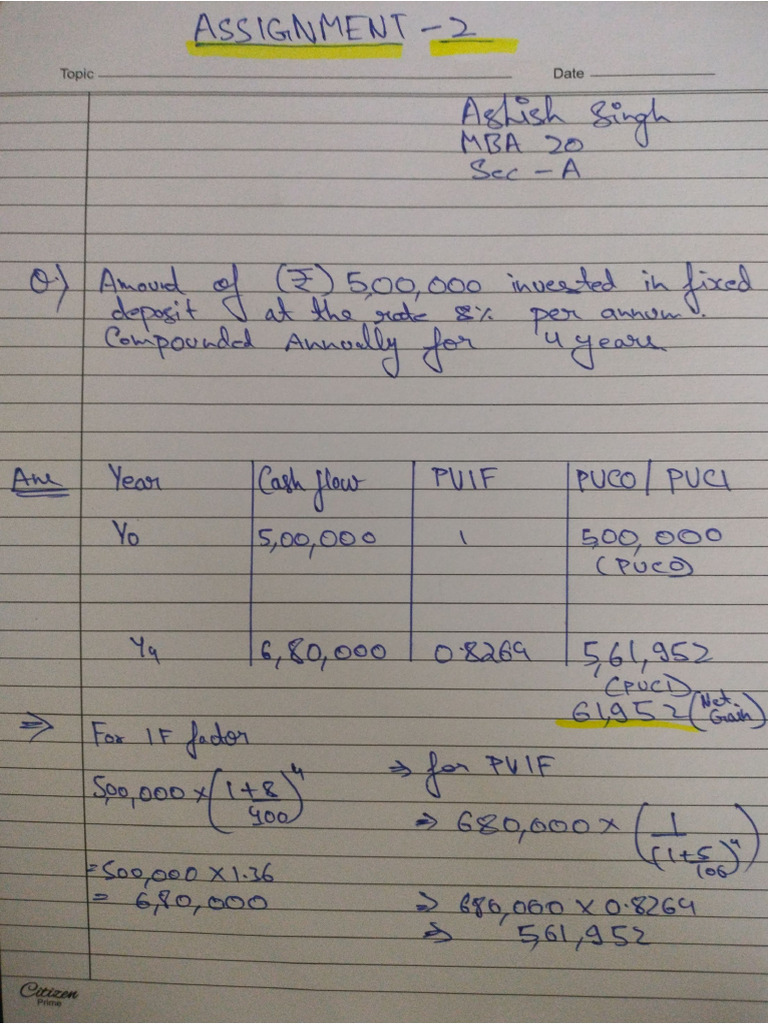 ASSIGNMENT - 2
Topic
Date
Ashish Singh
MBA 20
Sec - A
Q.) Amount of (₹) 5,00,000 invested in fixed
deposit at the rate 8% per annum.
Compounded Annually for 4 years
Ans
Year | Cash flow | PVIF | PVCO / PVCI
Y0 | 5,00,000 | 1 | 5,00,000
(PVCO)
Y4 | 6,80,000 | 0.8264 | 5,61,952
(PVCI)
61,952 (Net Gain)
⇒ For IF factor
500,000 × (1+8/100)^4
= 500,000 × 1.36
= 6,80,000
⇒ for PVIF
⇒ 680,000 × (1/(1+5/100)^4)
⇒ 680,000 × 0.8264
⇒ 5,61,952
Citizen
Prime